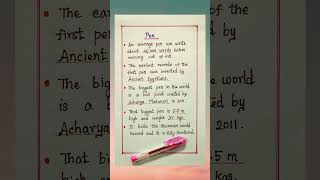 Pen
• An average pen can write
about 45,000 words before
running out of ink.
• The earliest records of the
first pen was invented by
Ancient Egyptians.
• The biggest pen in the world
is a ball point created by
Acharya Makunuri, in 2011.
• That biggest pen is 5.5 m
high and weight 37 kgs.
• It holds the Guinness World
Record and it is fully functional.